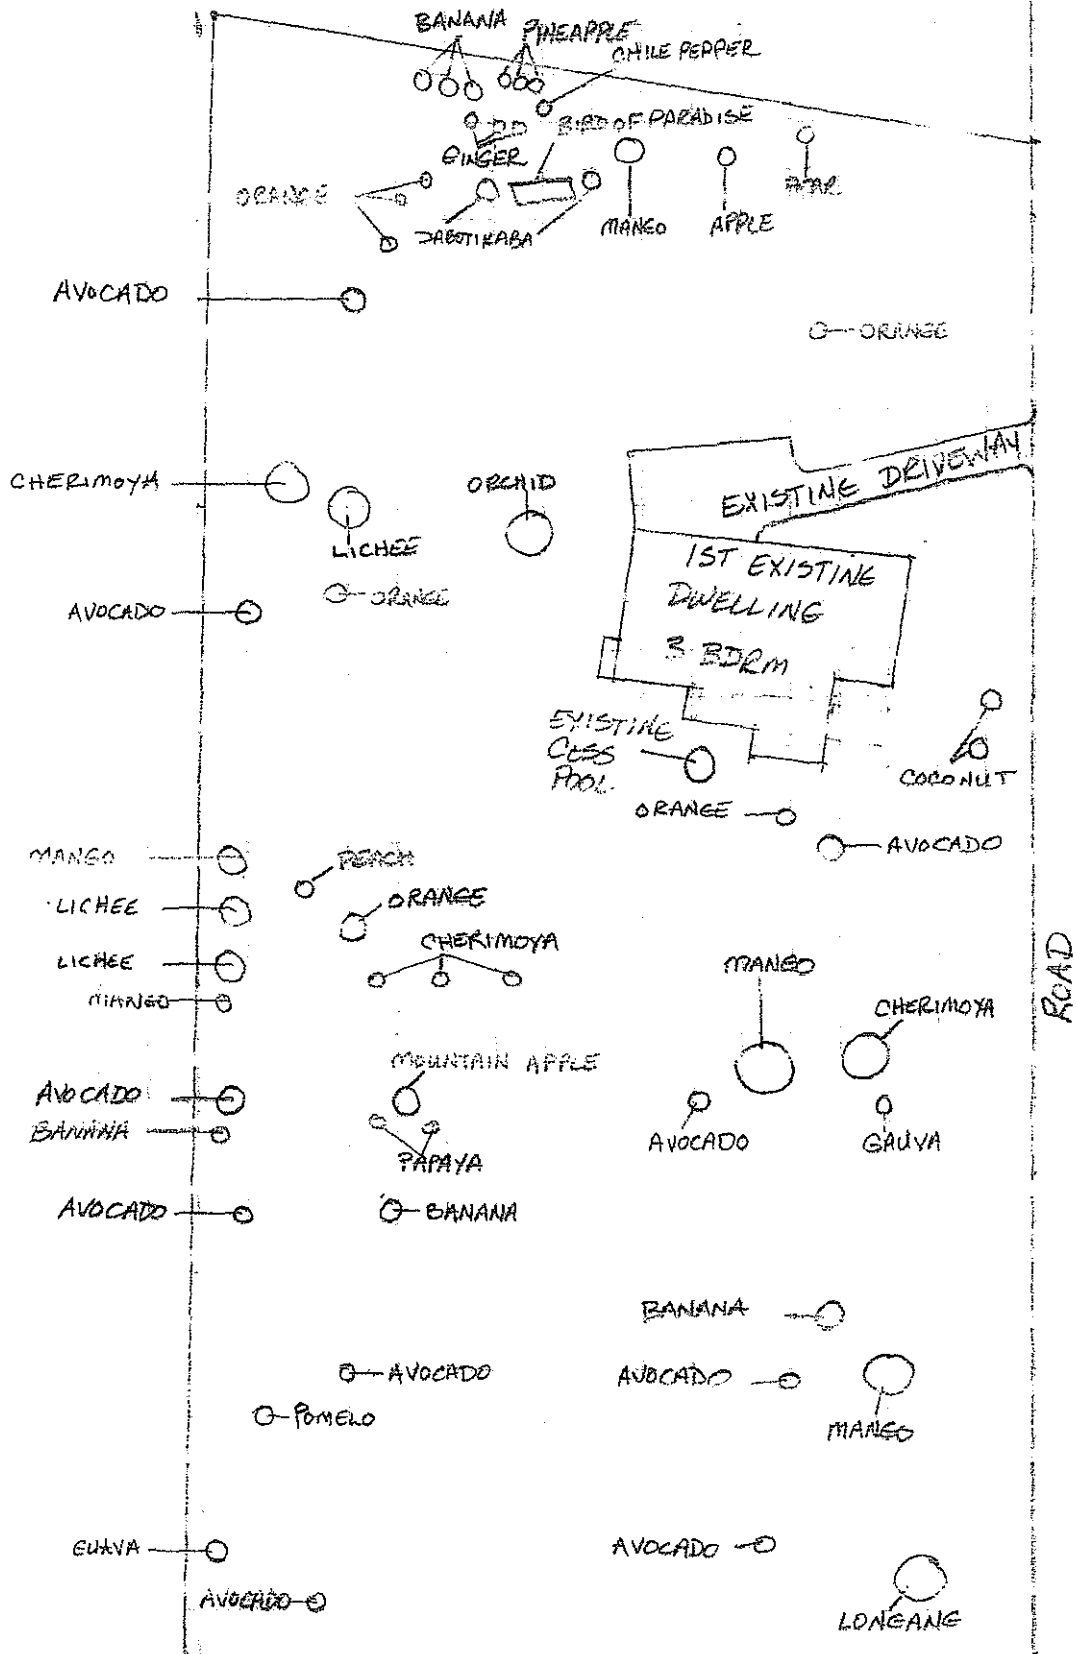 BANANA
PINEAPPLE
CHILE PEPPER
BIRD OF PARADISE
GINGER
ORANGE
JABOTIKABA
MANGO
APPLE
AVOCADO
ORANGE
CHERIMOYA
LICHEE
ORCHID
EXISTING DRIVEWAY
1ST EXISTING
DWELLING
3 BDRM
ORANGE
AVOCADO
EXISTING
CESS
POOL
COCONUT
ORANGE
AVOCADO
MANGO
PEACH
LICHEE
ORANGE
CHERIMOYA
LICHEE
MANGO
MANGO
CHERIMOYA
ROAD
MOUNTAIN APPLE
AVOCADO
BANANA
PAPAYA
AVOCADO
GAUVA
AVOCADO
BANANA
BANANA
AVOCADO
AVOCADO
POMELO
MANGO
GUAVA
AVOCADO
AVOCADO
LONGANE